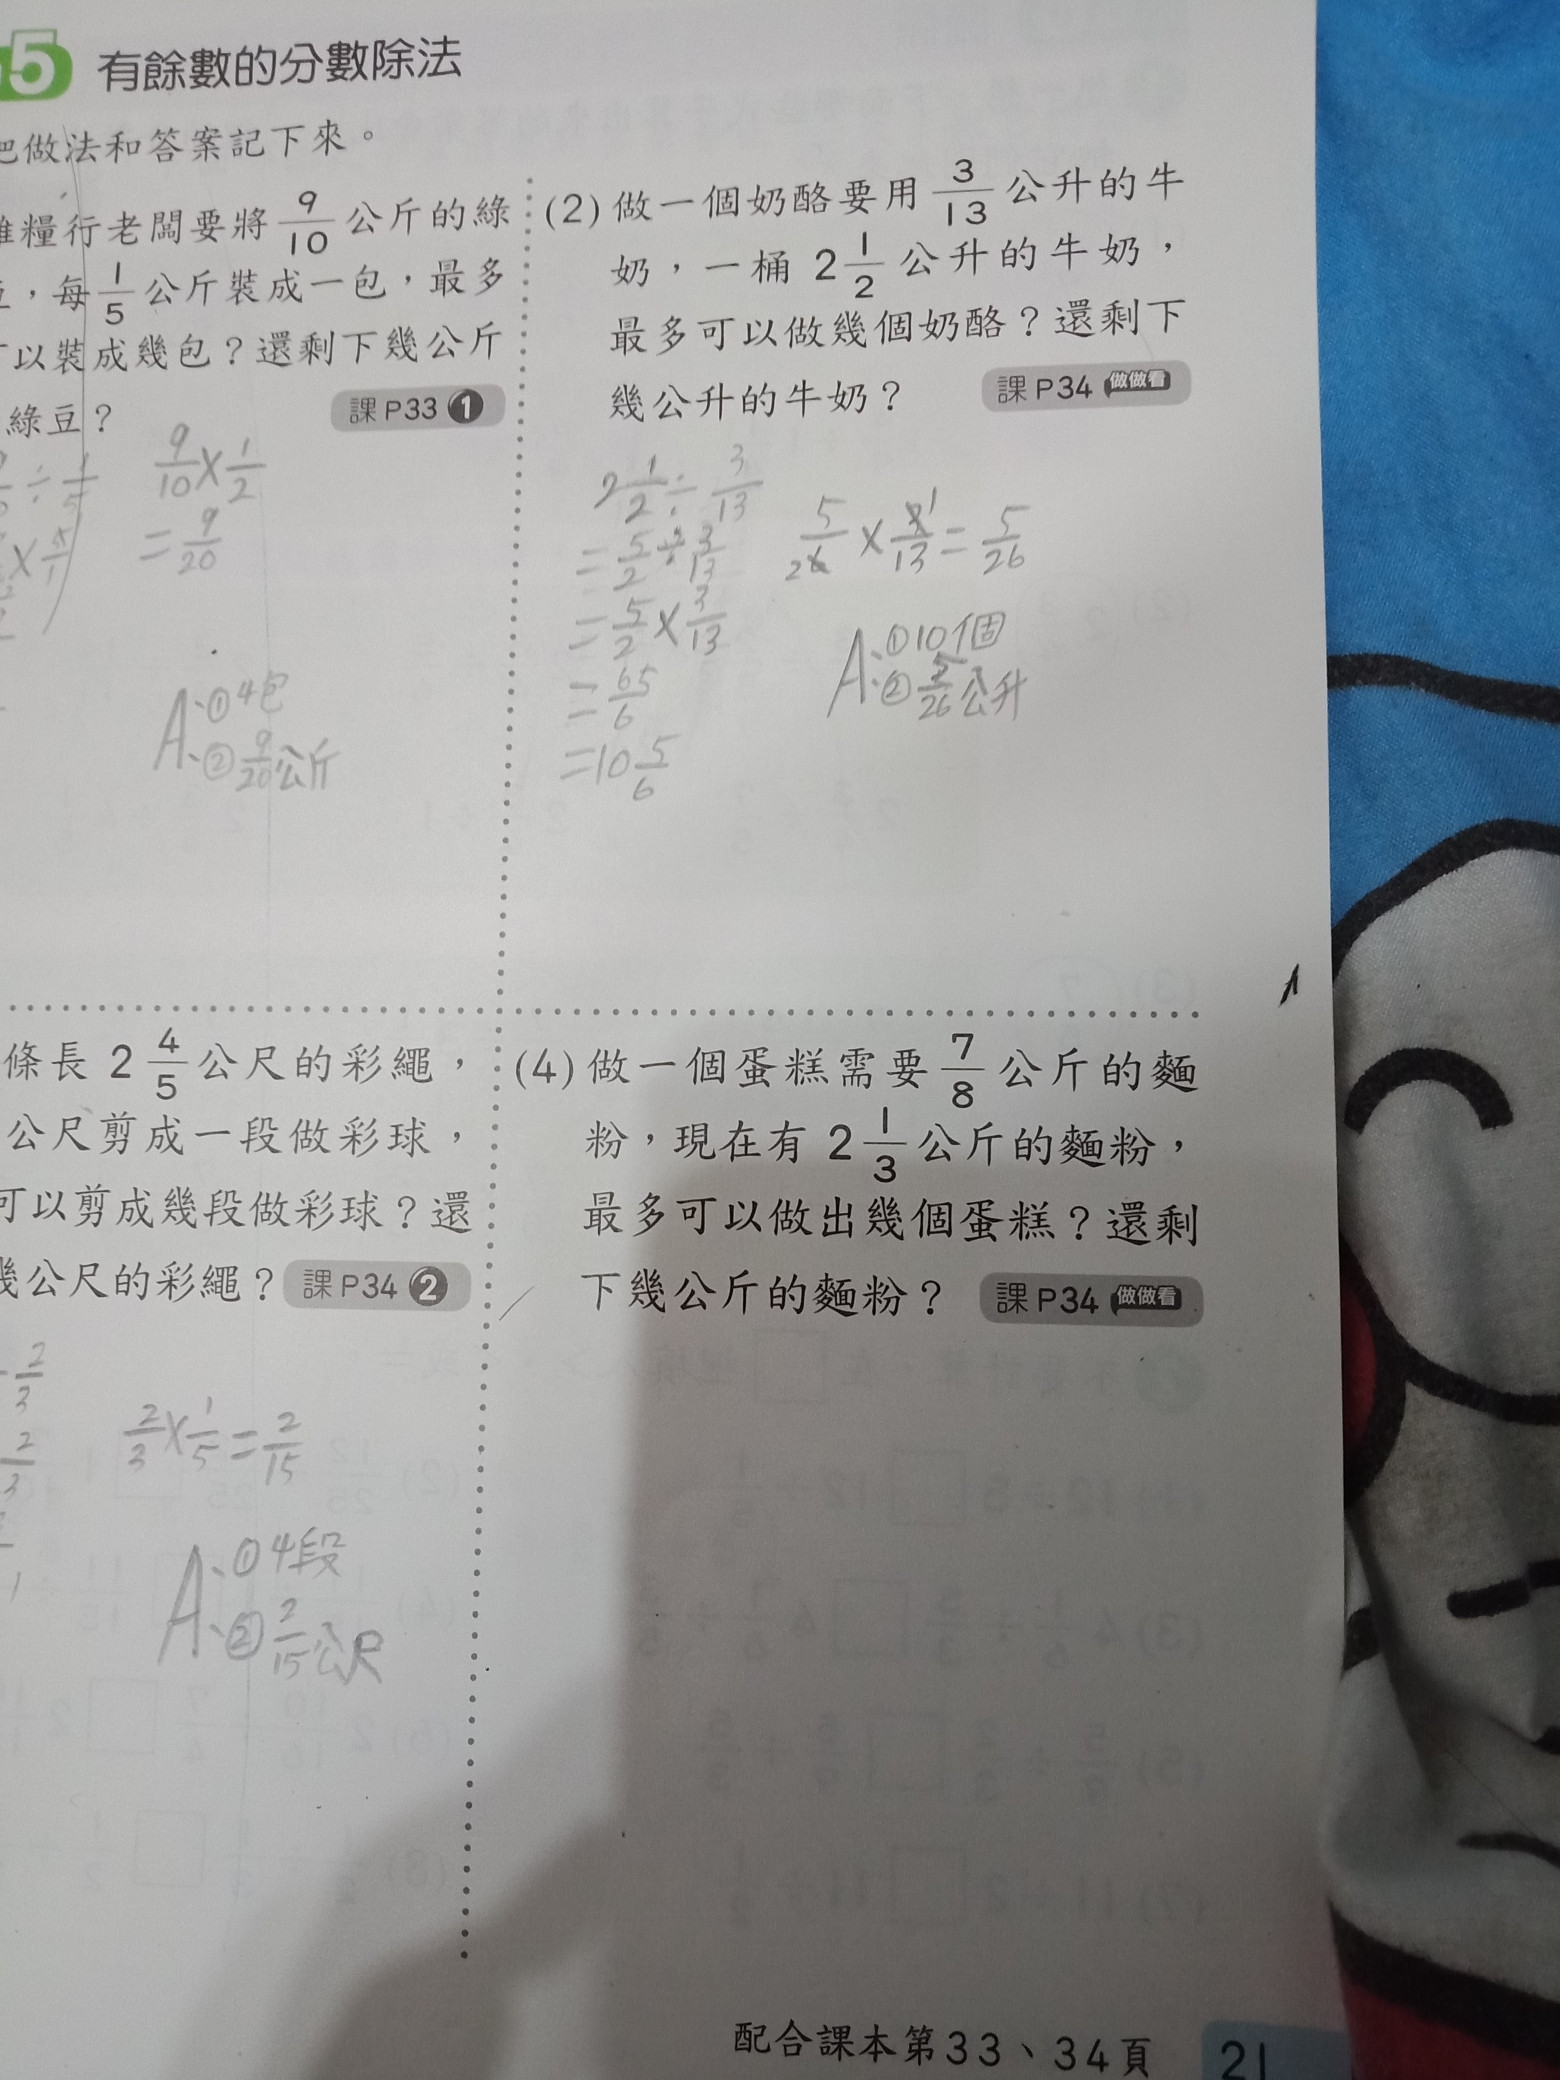 5 有餘數的分數除法
把做法和答案記下來。
雜糧行老闆要將 9/10 公斤的綠
豆，每 1/5 公斤裝成一包，最多
可以裝成幾包？還剩下幾公斤
綠豆？ 課P33 1
÷ 1/5
× 5/1
9/10 × 1/2
= 9/20
A:①4包
②9/20公斤
(2) 做一個奶酪要用 3/13 公升的牛
奶，一桶 2 1/2 公升的牛奶，
最多可以做幾個奶酪？還剩下
幾公升的牛奶？ 課P34 做做看
2 1/2 ÷ 3/13
= 5/2 ÷ 3/13
= 5/2 × 3/13
= 65/6
= 10 5/6
5/6 × 3/13 = 5/26
2 1
A:①10個
②5/26公升
條長 2 4/5 公尺的彩繩，
公尺剪成一段做彩球，
可以剪成幾段做彩球？還
幾公尺的彩繩？ 課P34 2
2/3
2/3
1
2/3 × 1/5 = 2/15
A:①4段
②2/15公尺
(4) 做一個蛋糕需要 7/8 公斤的麵
粉，現在有 2 1/3 公斤的麵粉，
最多可以做出幾個蛋糕？還剩
下幾公斤的麵粉？ 課P34 做做看
配合課本第33、34頁 21